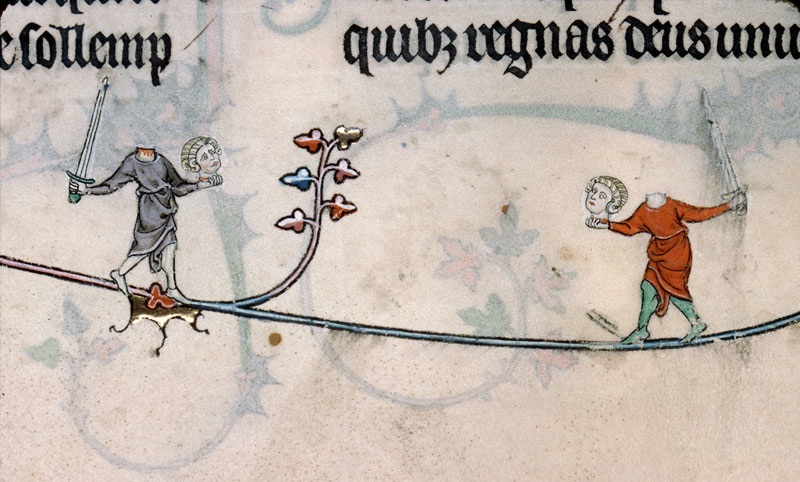 e sollemp
quibꝫ regnas deus unu